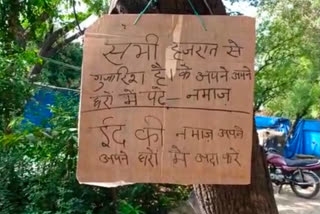 सभी हजरात से
गुजारिश है के अपने अपने
घरो में पढे नमाज़
ईद की नमाज़ अपने
अपने घरो मै अदा करे